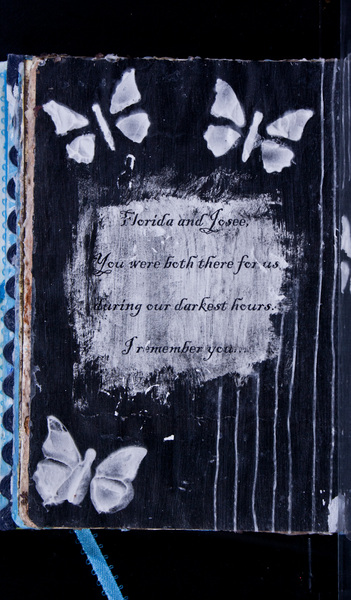 Florida and Josee,
You were both there for us
during our darkest hours.
I remember you...